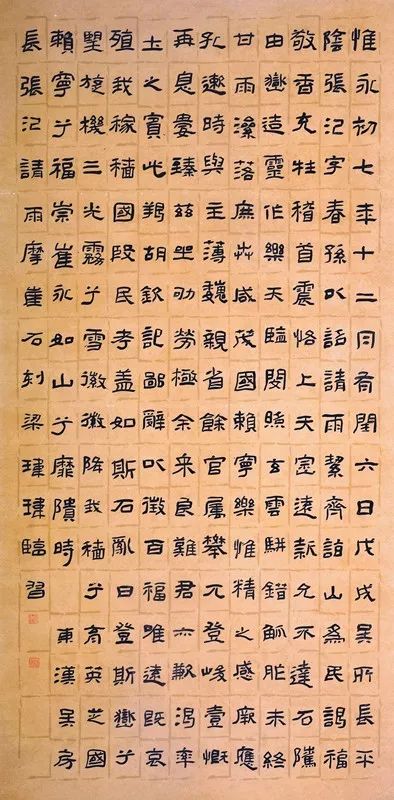 惟永初七年十二月有閏六日戊戌吳房長平
陰張汜字春孫以詔請雨絜齊詣山為民謁福
敬香充牲稽首震恪上天宓遠訴允不達石騰
由嶽造靈作樂天臨閔照玄雲騈錯觚胙未終
甘雨澯落庶卉咸茂國賴寧樂惟精之感厥應
孔邀時與主薄魏親省餘官屬攀兀登峻壹慨
再息婁臻兹坐劬勞極余采良難君亦歉渴率
土之賓羯胡欽記鄙辭以徵百福唯遠既哀
殖我稼穡國殷民考盖如斯石亂曰登斯嶽兮
堅旋機三光霧兮雪徵徵降我穡兮育英芝國
賴寧兮福崇崔永如山兮靡隤時 東漢吳房
長張汜請雨摩崖石刻梁瑋瑋臨習